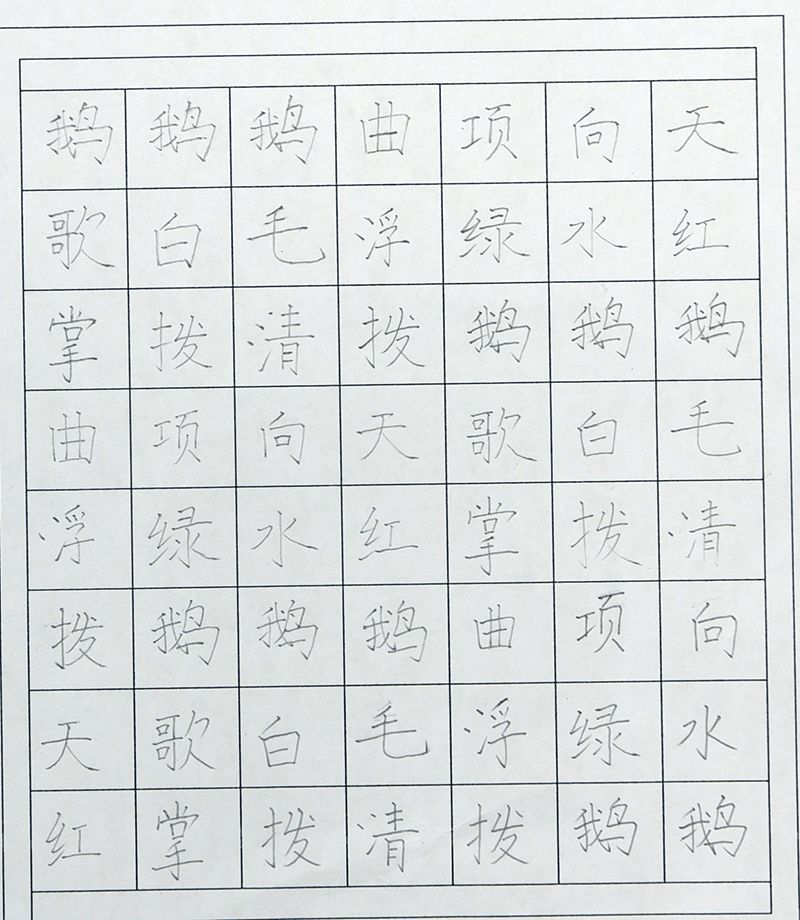 鹅鹅鹅曲项向天
歌白毛浮绿水红
掌拨清拨鹅鹅鹅
曲项向天歌白毛
浮绿水红掌拨清
拨鹅鹅鹅曲项向
天歌白毛浮绿水
红掌拨清拨鹅鹅